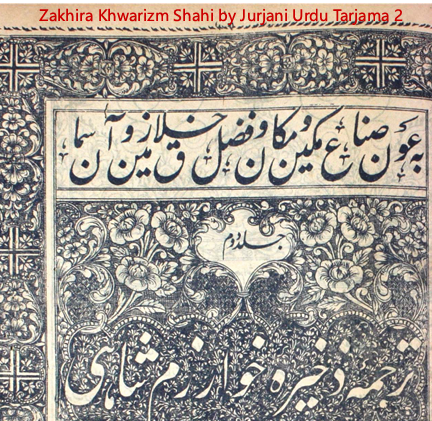 Zakhira Khwarizm Shahi by Jurjani Urdu Tarjama 2
به عون صناع مکین و مکان و فضل خلاق زمین و آسمان
جلد دوم
ترجمہ ذخیرہ خوارزم شاہی